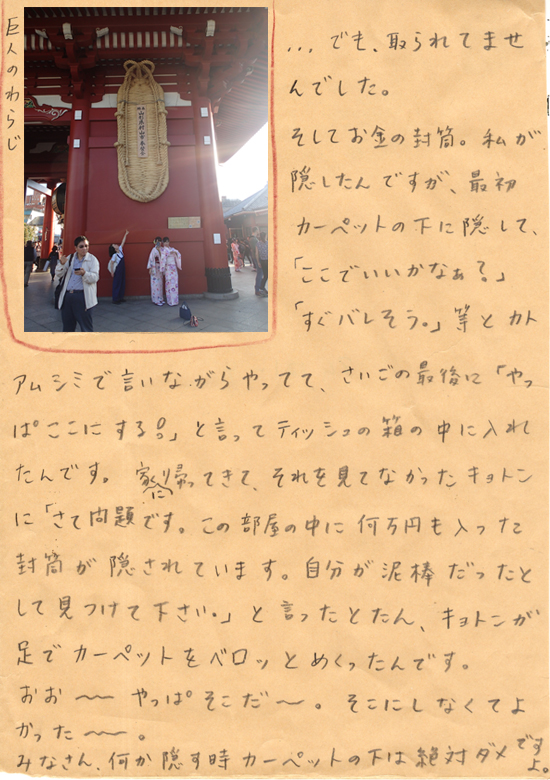 巨人のわらじ
…でも、取られてませ
んでした。
そしてお金の封筒。私が
隠したんですが、最初
カーペットの下に隠して、
「ここでいいかなぁ？」
「すぐバレそう。」等とカト
アムシミで言いながらやってて、さいごの最後に「やっ
ぱここにする！」と言ってティッシュの箱の中に入れ
たんです。家に帰ってきて、それを見てなかったキョトン
に「さて問題です。この部屋の中に何万円も入った
封筒が隠されています。自分が泥棒だったと
して見つけて下さい。」と言ったとたん、キョトンが
足でカーペットをベロッとめくったんです。
おお〜〜やっぱそこだ〜。そこにしなくてよ
かった〜〜。
みなさん、何か隠す時カーペットの下は絶対ダメですよ。